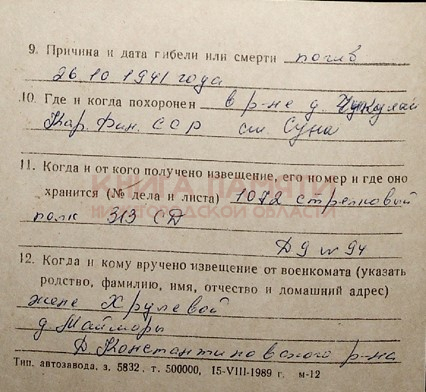 9. Причина и дата гибели или смерти погиб
26.10.1941 года
10. Где и когда похоронен в р-не д. Чукулай
Кар. Фин. ССР ст. Суна
11. Когда и от кого получено извещение, его номер и где оно
хранится (№ дела и листа) 1072 стрелковый
полк 313 СД
Д 9 л 94
12. Когда и кому вручено извещение от военкомата (указать
родство, фамилию, имя, отчество и домашний адрес)
жене Хрулевой
д. Маймары
Д Константиновского р-на
Тип. автозавода, з. 5832, т. 500000, 15-VIII-1989 г. м-12
КНИГА ПАМЯТИ
НИЖЕГОРОДСКОЙ ОБЛАСТИ